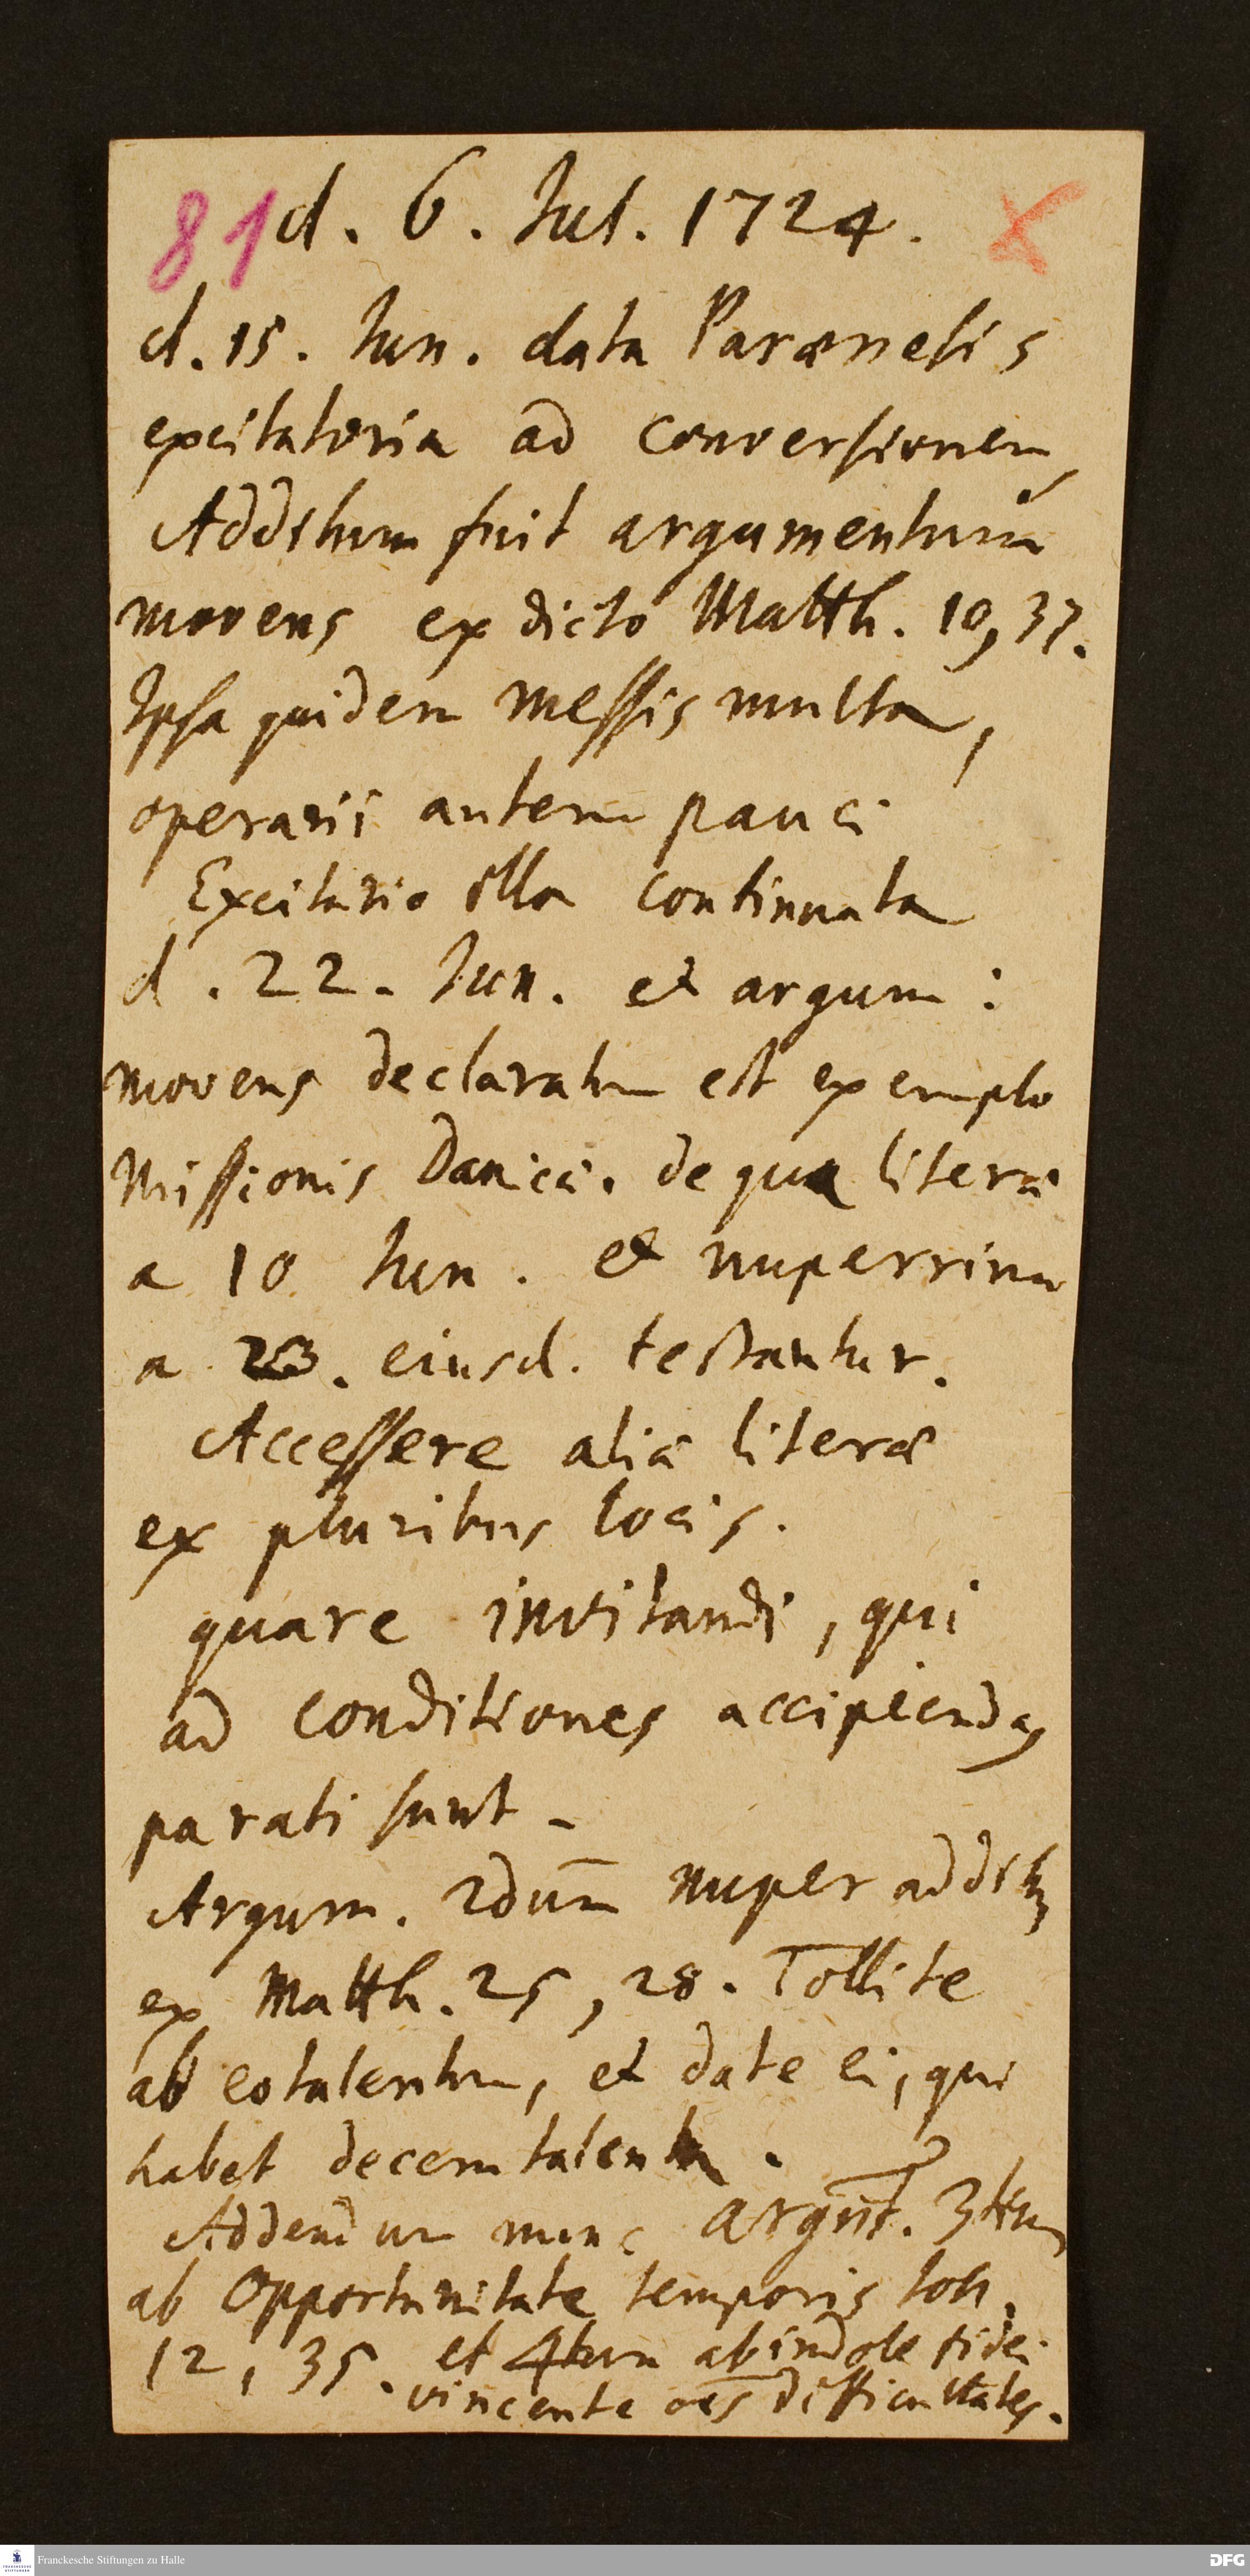 81 d. 6. Jul. 1724.
d. 15. Jun. data Parænesis
excitatoria ad conversionem,
Additum fuit argumentum
movens ex dicto Matth. 10, 37.
Ipsa quidem messis multa,
operarii autem pauci
Excitatio illa continuata
d. 22. Jun. et argum:
movens declaratum est exemplo
Missionis Danicæ. de qua literæ
a 10 Jun. et nuperrimæ
a 23. eiusd. testantur.
Accessere aliæ literæ
ex pluribus locis.
quare invitandi, qui
ad conditiones accipiendas
parati sunt.
Argum. 2dum̅ nuper additum
ex Matth. 25, 28. Tollite
ab eo talentum, et date ei, qui
habet decem talenta.
Addendum nunc argūt. 3tium
ab opportunitate temporis Joh.
12, 35. et 4tum ab indole fidei
vincente oēs difficultates.
Franckesche Stiftungen zu Halle
DFG